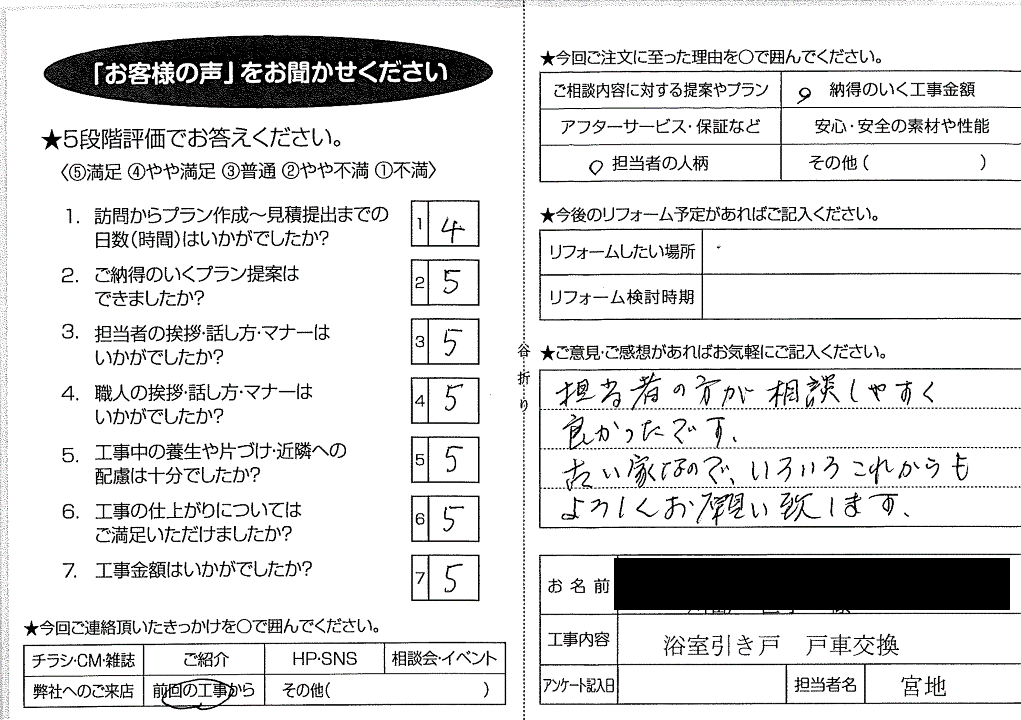 「お客様の声」をお聞かせください
★5段階評価でお答えください。
〈⑤満足 ④やや満足 ③普通 ②やや不満 ①不満〉
1. 訪問からプラン作成～見積提出までの
日数(時間)はいかがでしたか?
1 4
2. ご納得のいくプラン提案は
できましたか?
2 5
3. 担当者の挨拶・話し方・マナーは
いかがでしたか?
3 5
4. 職人の挨拶・話し方・マナーは
いかがでしたか?
4 5
5. 工事中の養生や片づけ・近隣への
配慮は十分でしたか?
5 5
6. 工事の仕上がりについては
ご満足いただけましたか?
6 5
7. 工事金額はいかがでしたか?
7 5
★今回ご連絡頂いたきっかけを〇で囲んでください。
チラシ・CM・雑誌 ご紹介 HP・SNS 相談会・イベント
弊社へのご来店 前回の工事から その他( )
谷折り
★今回ご注文に至った理由を〇で囲んでください。
ご相談内容に対する提案やプラン 納得のいく工事金額
アフターサービス・保証など 安心・安全の素材や性能
担当者の人柄 その他( )
★今後のリフォーム予定があればご記入ください。
リフォームしたい場所
リフォーム検討時期
★ご意見・ご感想があればお気軽にご記入ください。
担当者の方が相談しやすく
良かったです。
古い家なので、いろいろこれからも
よろしくお願い致します。
お名前
工事内容 浴室引き戸 戸車交換
アンケート記入日 担当者名 宮地